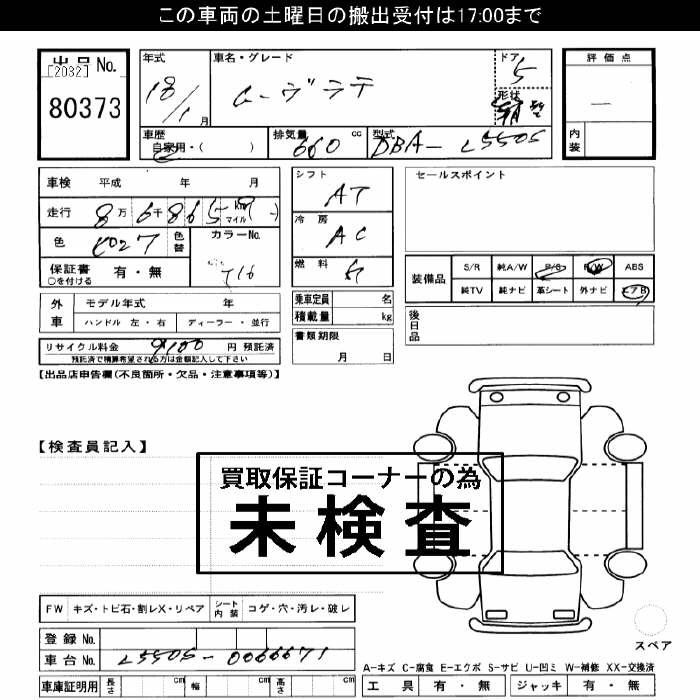 この車両の土曜日の搬出受付は17:00まで
出品No.
[2032]
80373
年式
18/1月
車名・グレード
ムーヴラテ
ドア
5
形状
評価点
内装
車歴
自家用・( )
排気量
660 cc
型式
DBA-L550S
車検 平成 年 月
走行 8万6千865 km マイル
色
色替
カラーNo.
T16
保証書 有・無
○を付ける
シフト
AT
冷房
AC
燃料
ガ
セールスポイント
装備品
S/R 純A/W P/S P/W ABS
純TV 純ナビ 革シート 外ナビ エアB
外車
モデル年式 年
ハンドル 左・右 ディーラー・並行
乗車定員 名
積載量 kg
後日品
リサイクル料金 9,100 円 預託済
預託済で精算希望される方は金額記入して下さい
書類期限
月 日
【出品店申告欄(不良箇所・欠品・注意事項等)】
【検査員記入】
買取保証コーナーの為
未検査
FW キズ・トビ石・割レX・リペア シート内装 コゲ・穴・汚レ・破レ
登録No.
車台No. L550S-0066671
スペア
A-キズ C-腐食 E-エクボ S-サビ U-凹ミ W-補修 XX-交換済
車庫証明用 長さ cm 幅 cm 高さ cm
工具 有・無 ジャッキ 有・無